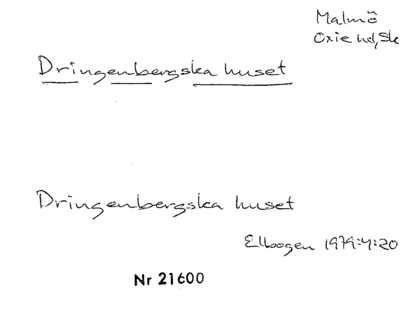 Malmö
Oxie hd, Sk
Dringenbergska huset
Dringenbergska huset
Elbogen 1979:4:20
Nr 21600